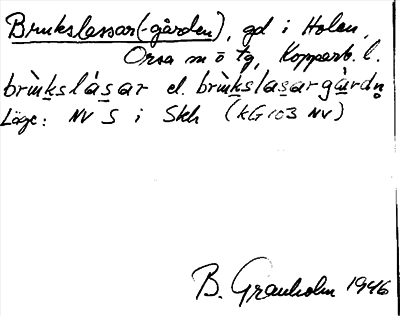 Brukslassar(-gården), gd i Holen,
Orsa sn o tg, Kopparb. l.
brùu̱kslás̱ar el. brùu̱kslas̱argàrdn̥
Läge: NV S i Skh (KG 103 NV)
B. Granholm 1946